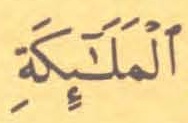 ٱلْمَلَـٰٓئِكَةِ